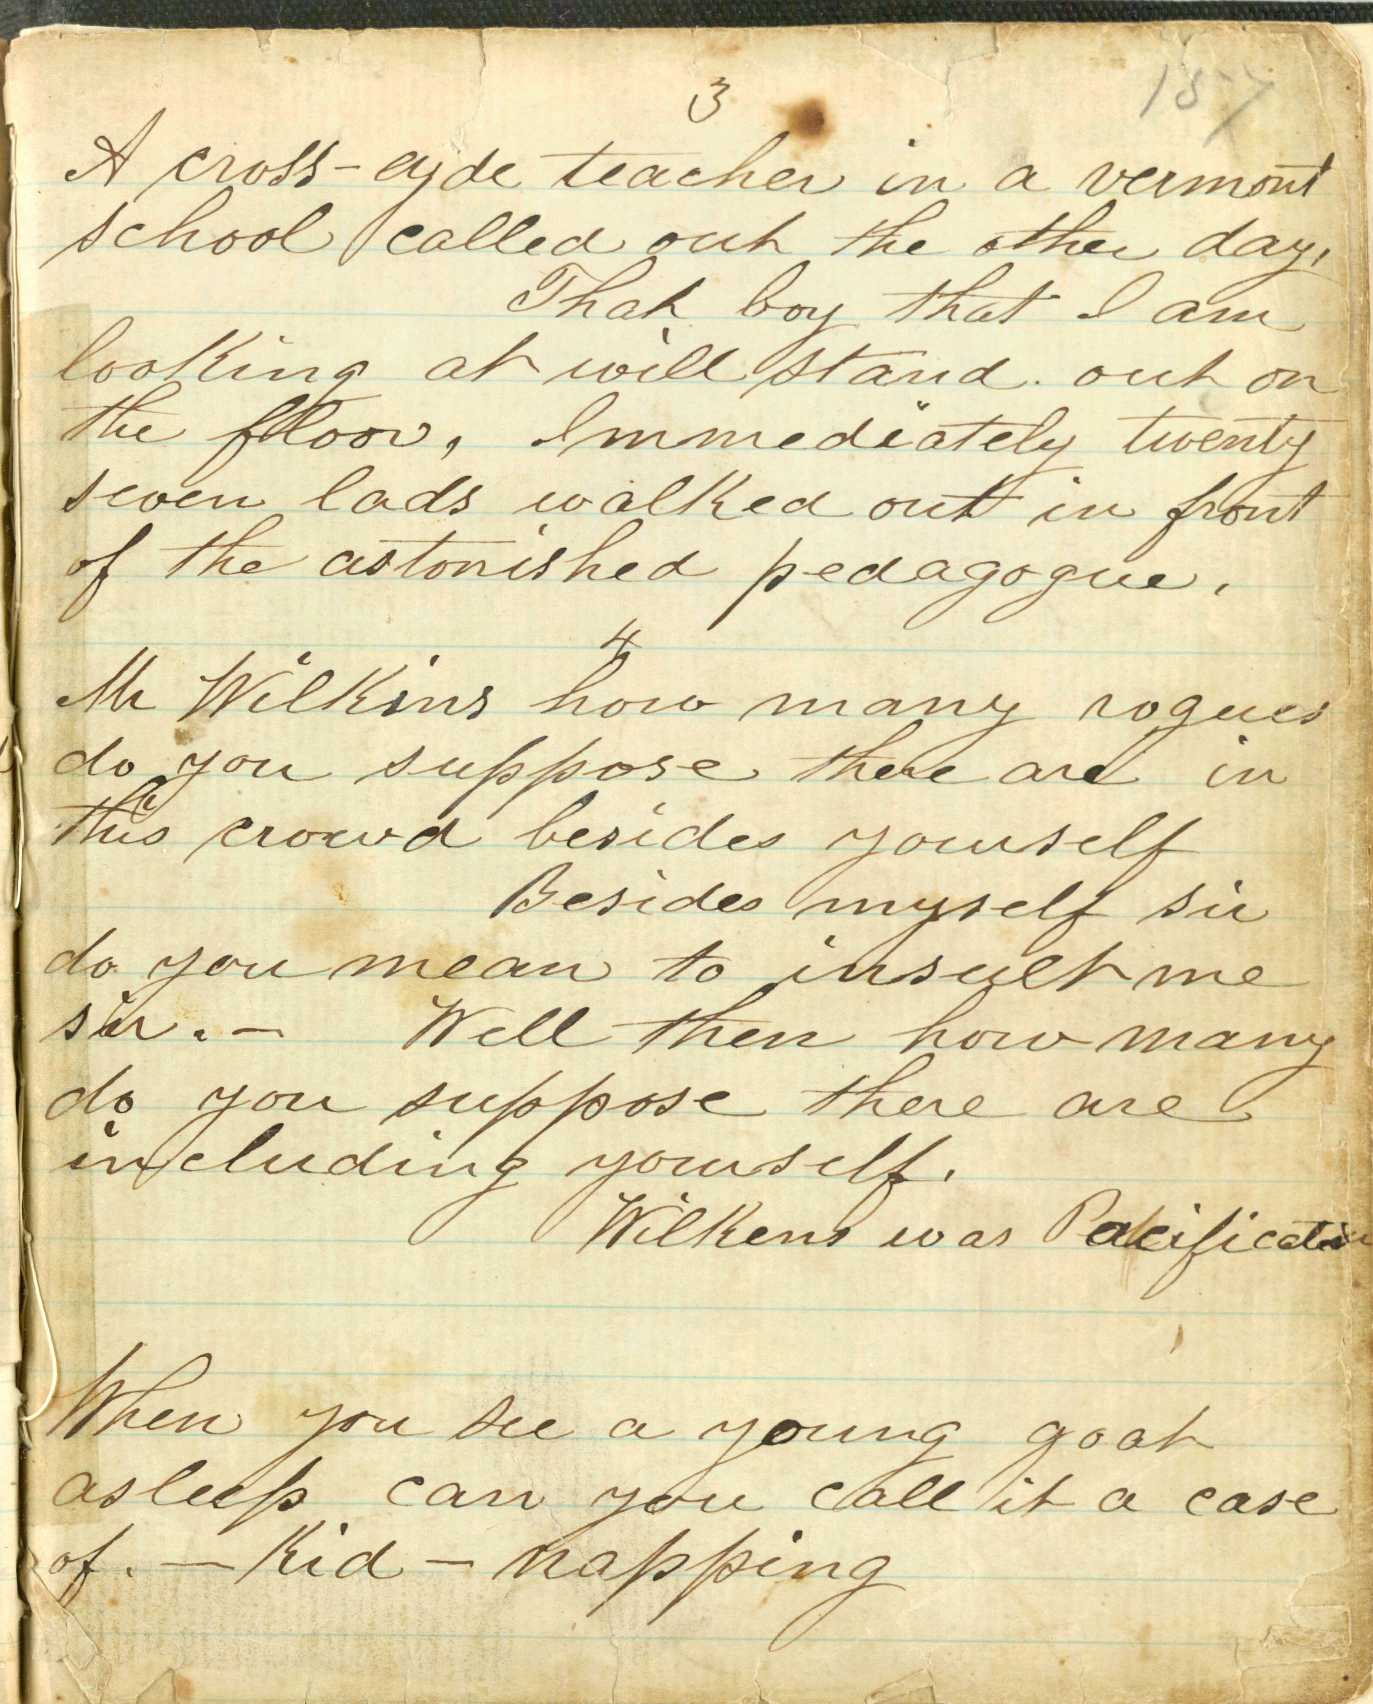 3
157
A cross-eyde teacher in a vermont
school called out the other day,
That boy that I am
looking at will stand out on
the floor, Immediately twenty
seven lads walked out in front
of the astonished pedagogue.
4
Mr Wilkins how many rogues
do you suppose there are in
this crowd besides yourself
Besides myself sir
do you mean to insult me
sir. - Well then how many
do you suppose there are
including yourself.
Wilkens was Pacification
When you see a young goat
asleep can you call it a case
of. - Kid - napping